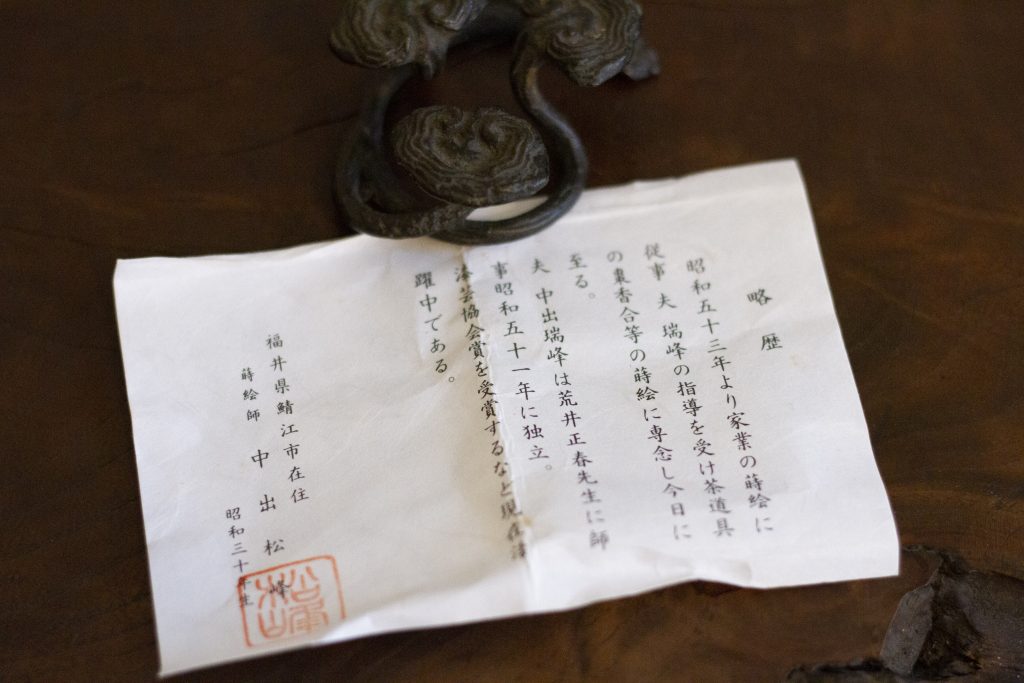 略歴
昭和五十三年より家業の蒔絵に
従事 夫 瑞峰の指導を受け茶道具
の棗香合等の蒔絵に専念し今日に
至る。
夫 中出瑞峰は荒井正春先生に師
事昭和五十一年に独立。
漆芸協会賞を受賞するなど現在活
躍中である。
福井県鯖江市在住
蒔絵師 中出松峰
昭和三十年生
松峰